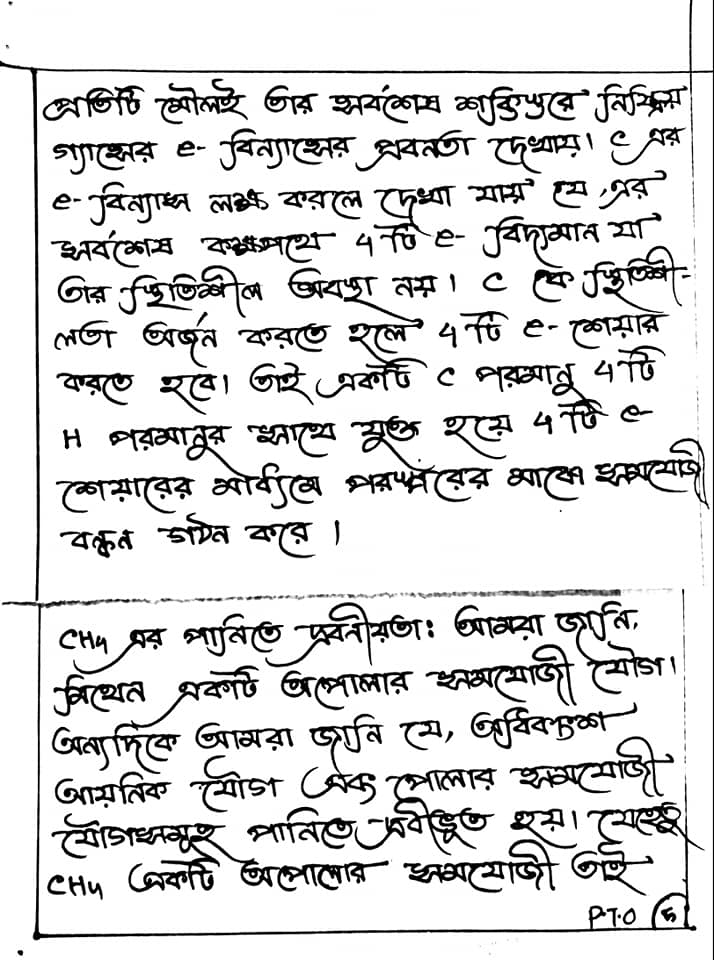 প্রতিটি মৌলই তার সর্বশেষ শক্তিস্তরে নিষ্ক্রিয়
গ্যাসের e- বিন্যাসের প্রবনতা দেখায়। C এর
e- বিন্যাস লক্ষ করলে দেখা যায় যে, এর
সর্বশেষ কক্ষপথে 4 টি e- বিদ্যমান যা
তার স্থিতিশীল অবস্থা নয়। C কে স্থিতিশী-
লতা অর্জন করতে হলে 4 টি e- শেয়ার
করতে হবে। তাই একটি C পরমানু 4 টি
H পরমানুর সাথে যুক্ত হয়ে 4 টি e-
শেয়ারের মাধ্যমে পরস্পরের মাঝে সমযোজী
বন্ধন গঠন করে।
CH4 এর পানিতে দ্রবনীয়তা: আমরা জানি,
মিথেন একটি অপোলার সমযোজী যৌগ।
অন্যদিকে আমরা জানি যে, অধিকাংশ
আয়নিক যৌগ এবং পোলার সমযোজী
যৌগসমূহ পানিতে দ্রবীভূত হয়। যেহেতু
CH4 একটি অপোলার সমযোজী তাই
P.T.O